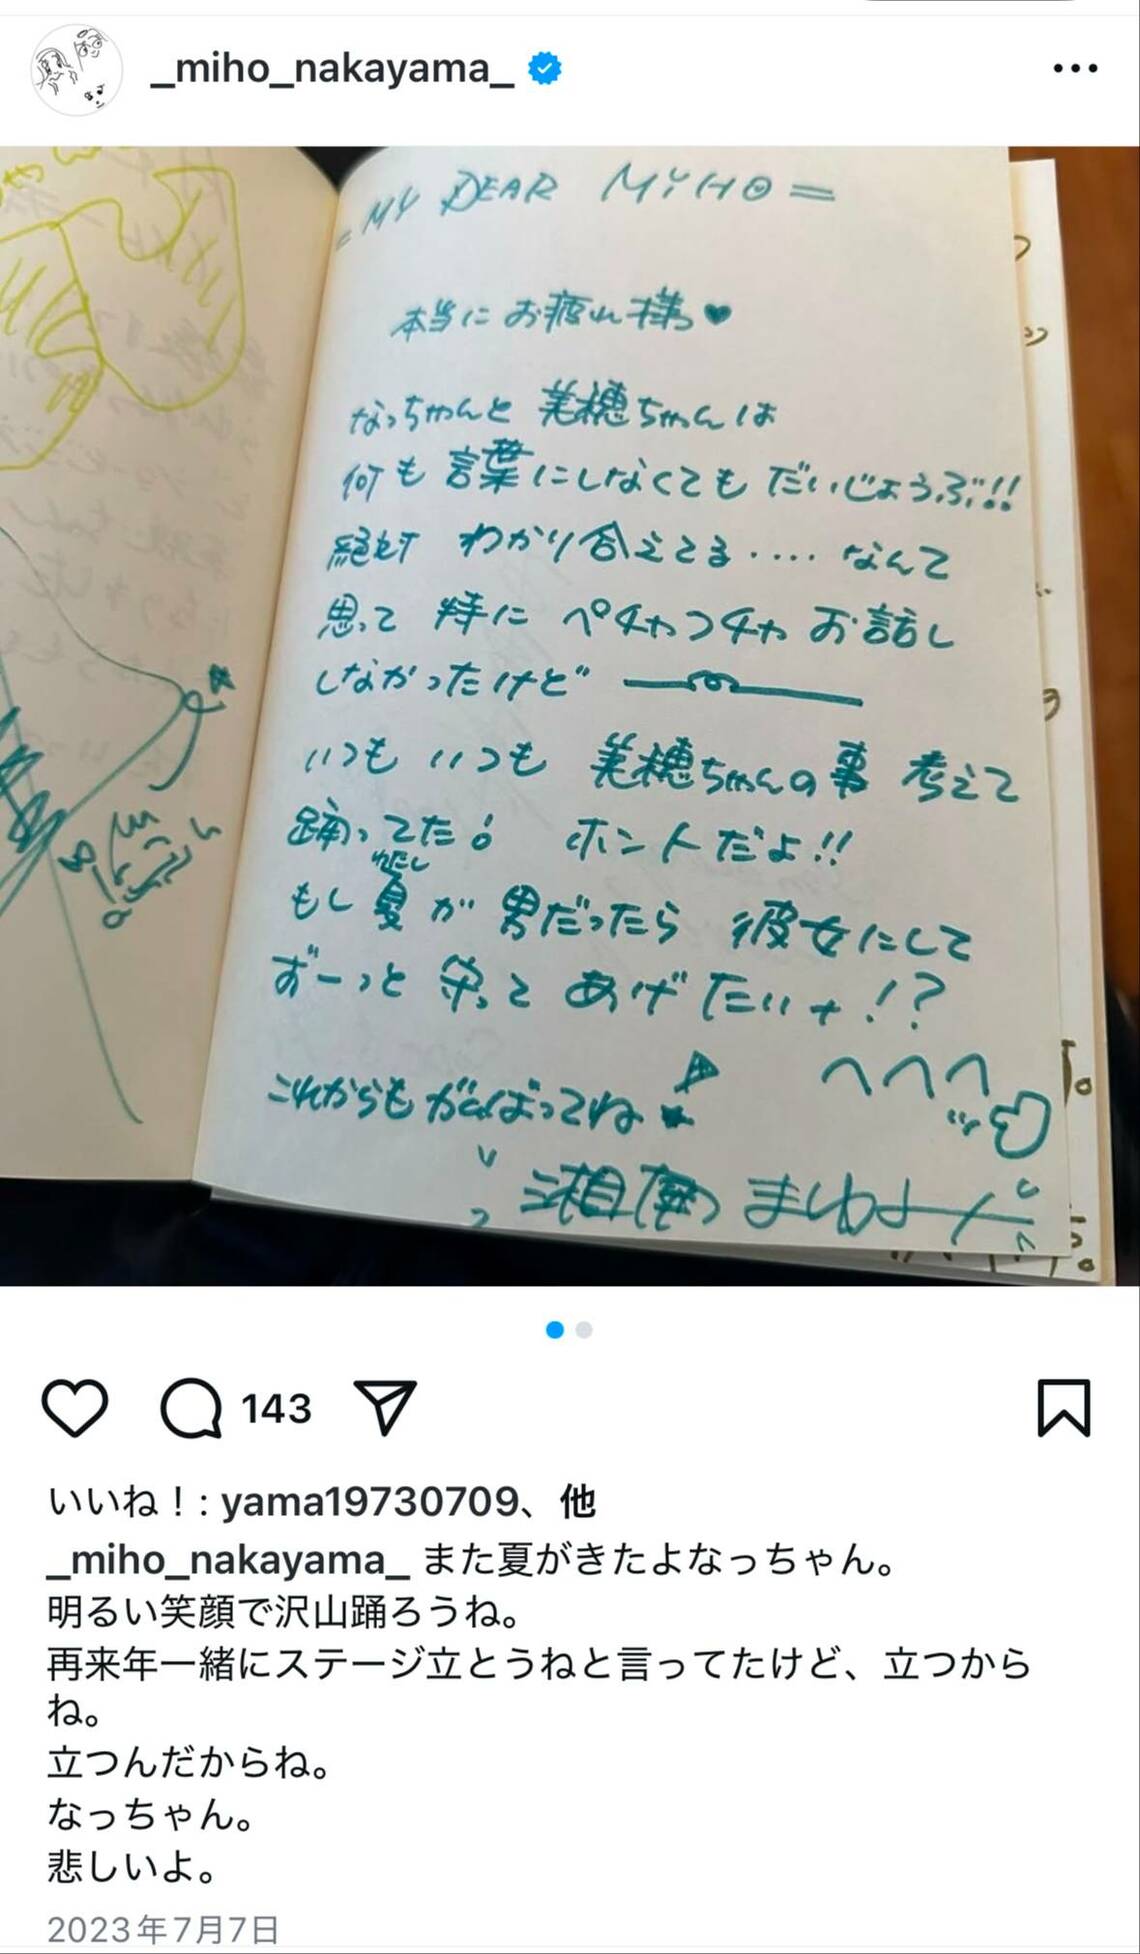 _miho_nakayama_
= MY DEAR MIHO =
本当にお疲れ様♥
なっちゃんと美穂ちゃんは
何も言葉にしなくてもだいじょうぶ!!
絶対わかり合えてる....なんて
思って特にペチャクチャお話し
しなかったけど
いつもいつも美穂ちゃんの事考えて
踊ってた! ホントだよ!!
わたし
もし夏が男だったら彼女にして
ずーっと守ってあげたいナ!?
へへへ
これからもがんばってね
143
いいね！: yama19730709、他
_miho_nakayama_ また夏がきたよなっちゃん。
明るい笑顔で沢山踊ろうね。
再来年一緒にステージ立とうねと言ってたけど、立つから
ね。
立つんだからね。
なっちゃん。
悲しいよ。
2023年7月7日